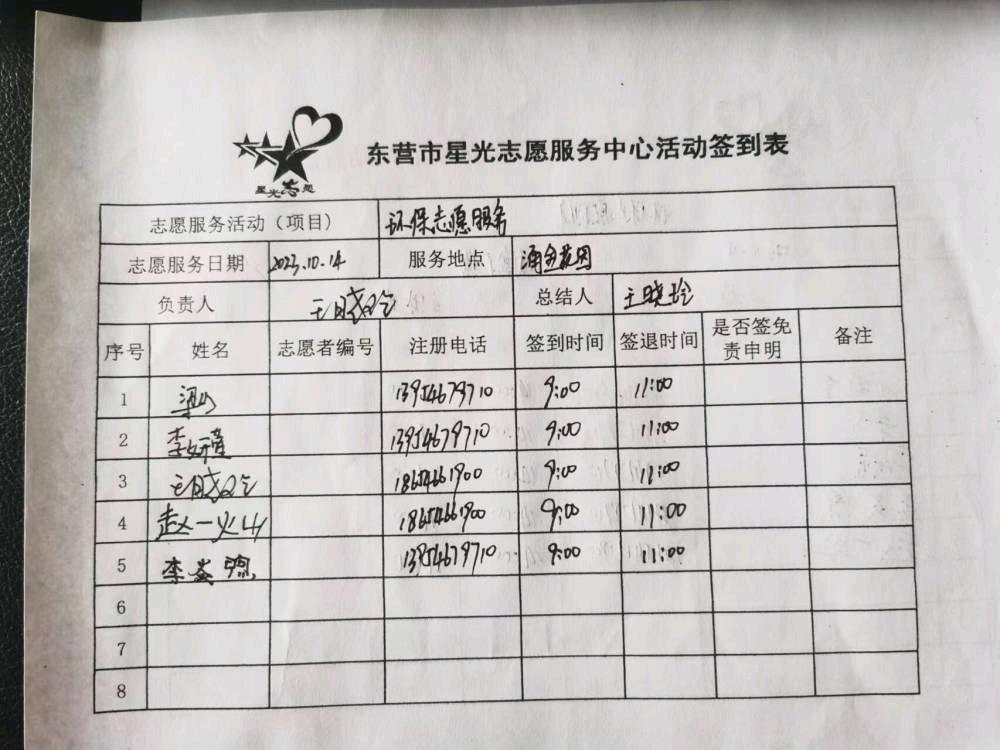 星光志愿
东营市星光志愿服务中心活动签到表
志愿服务活动（项目） 环保志愿服务
志愿服务日期 2023.10.14 服务地点 涌金花园
负责人 王晓玲 总结人 王晓玲
序号 姓名 志愿者编号 注册电话 签到时间 签退时间 是否签免责申明 备注
1 梁山 13954679710 9:00 11:00
2 13954679710 9:00 11:00
3 王晓玲 9:00 11:00
4 赵一火山 9:00 11:00
5 李 13954679710 9:00 11:00
6
7
8